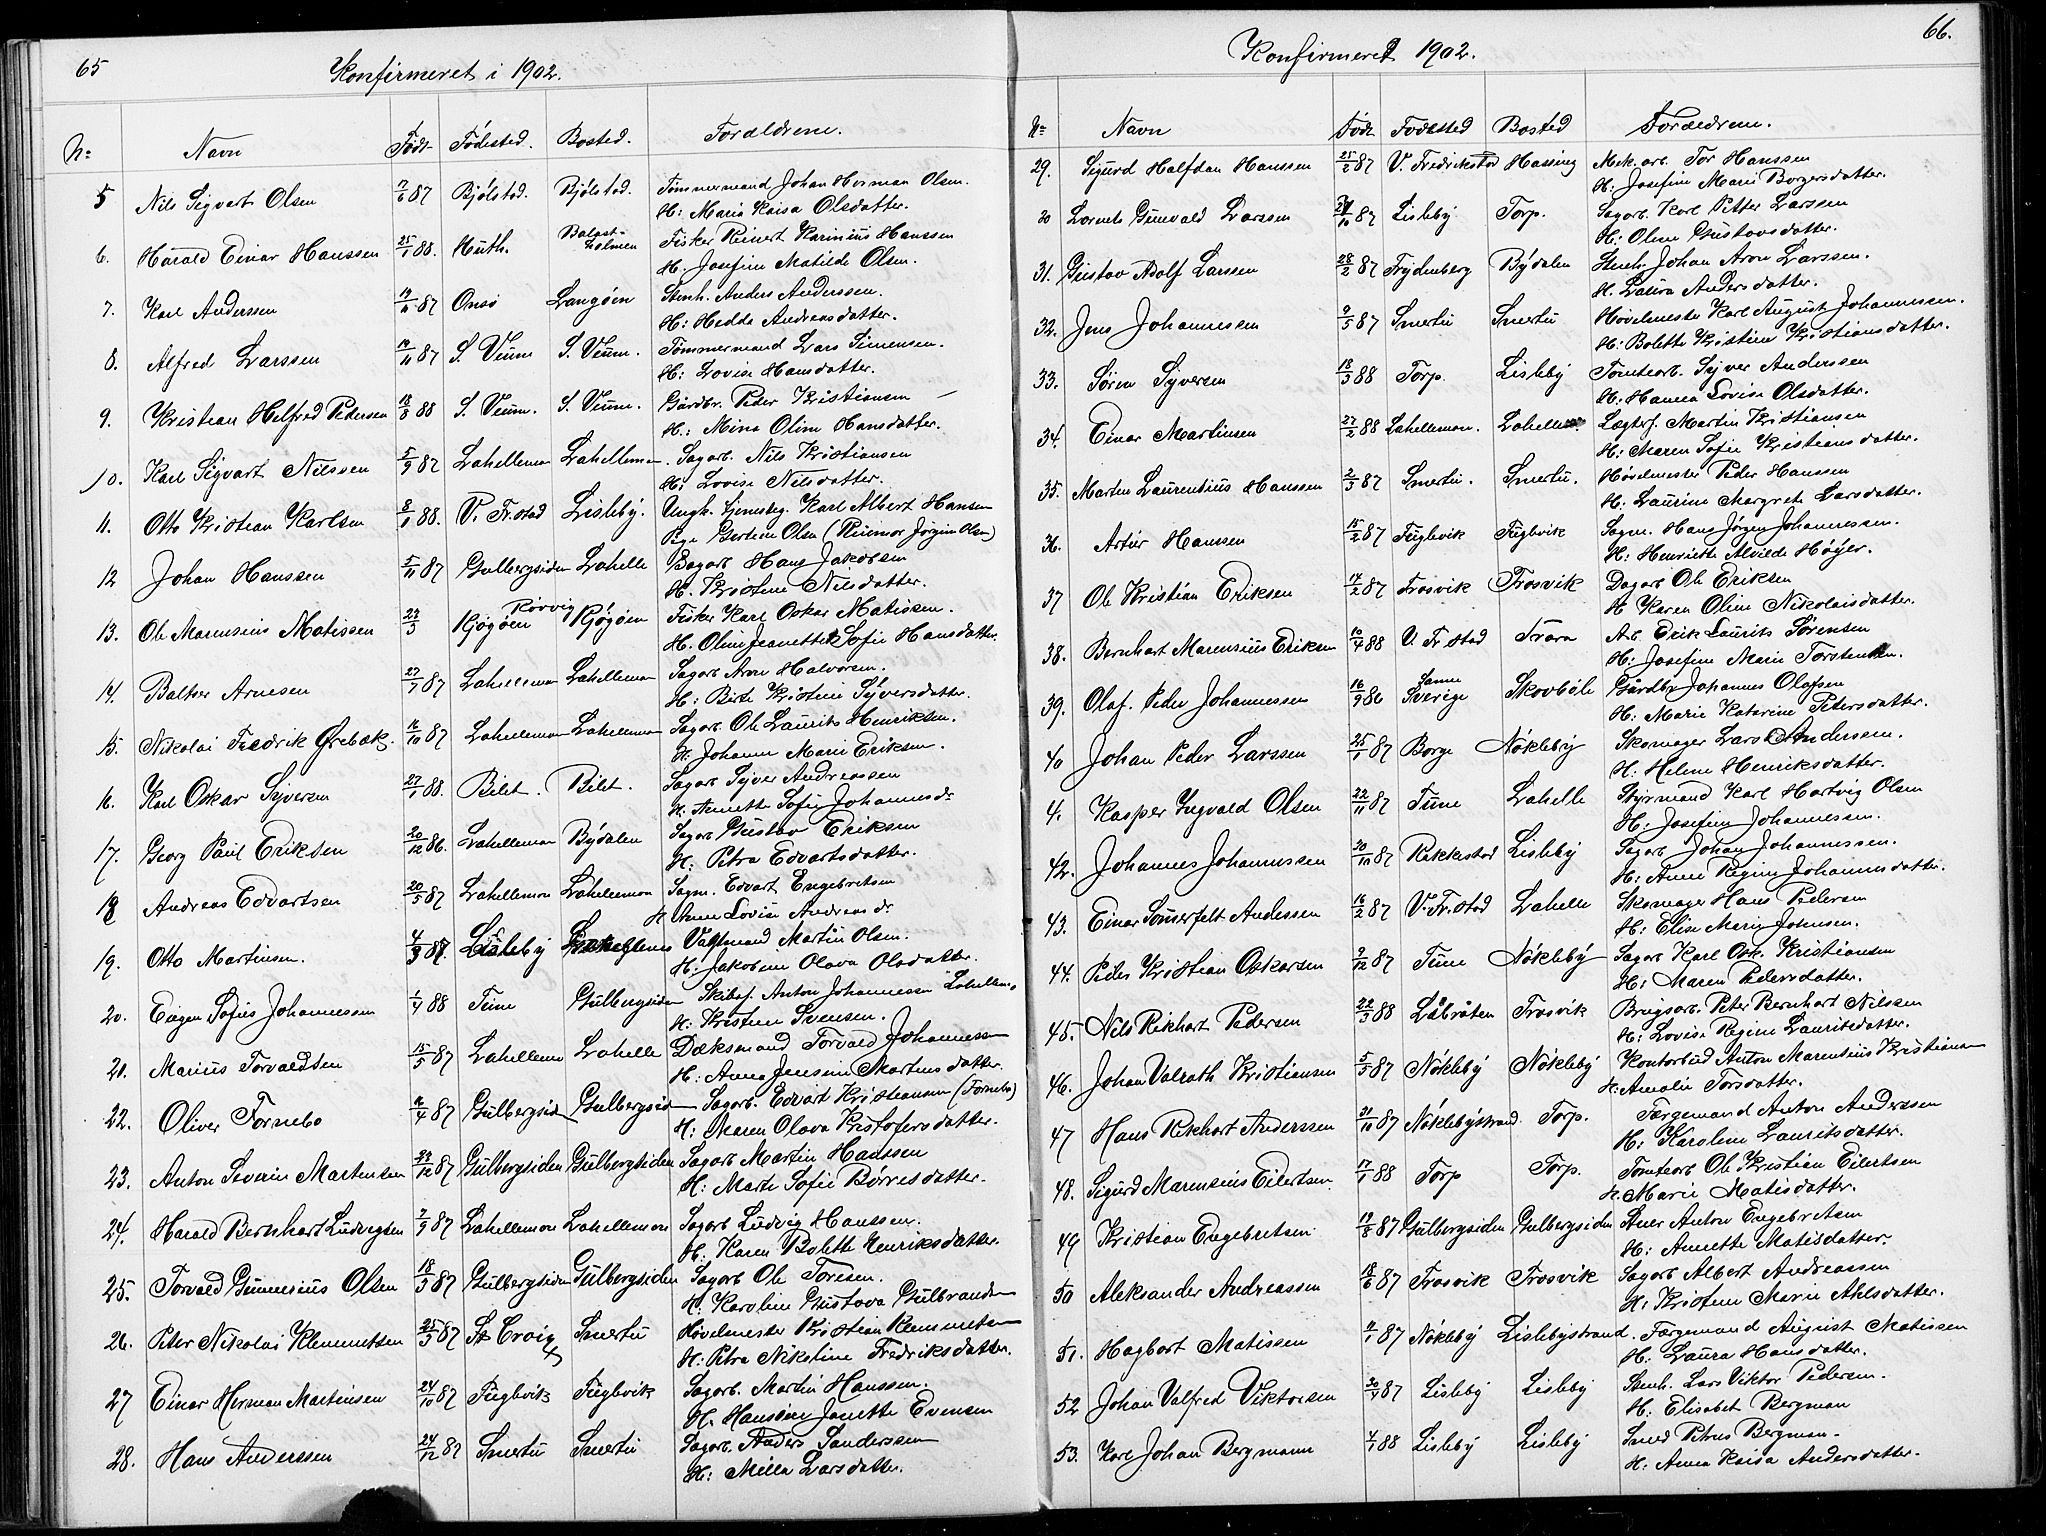 65
Konfirmeret i 1902.
No Navn Født Fødested. Bosted. Foræeldrene.
5 Nils Sigvart Olsen 7/6 87 Bjølstad. Bjølstad. Tømmermand Johan Herman Olsen.
H: Maria Kaisa Olsdatter.
6. Harald Einar Hanssen 25/1 88. Huth. Balast-holmen Fisker Reinert Karinius Hanssen
H. Josefine Matilde Olsen.
7. Karl Anderssen 87 Onsø Langøen Stenh. Anders Anderssen.
H: Hedda Andreasdatter.
8. Alfred Larssen 87 S. Veum S. Veum. Tømmermand Lars Simensen.
H: Lovise Hansdatter.
9. Kristian Helfred Pedersen 18/3 88 S. Veum. S. Veum. Gårdbr. Peder Kristiansen
H.: Mina Oline Hansdatter.
10. Karl Sigvart Nilssen 5/9 87 Lahellemon Lahellemon. Sagarb. Nils Kristiansen
H: Lovise Nilsdatter.
11. Otto Kristian Karlsen 8/1 88. V. Fr.stad Lisleby. Ungk. Tjenesteg. Karl Albert Hansen
Pige Gertine Olsen (Reiemor Jörgen Olsen)
12 Johan Hanssen 5/11 87 Gulbergsiden Lahelle Bagarb Hans Jakobsen
H. Kristine Nilsdatter.
13. Ole Marensius Matissen 23/3 Kjøgøen Rørvig Kjøgøen Fisker Karl Oskar Matissen.
H. Oline Jeanette Sofie Hansdatter.
14. Balter Arnesen 27/7 87 Lahellemon Lahellemon Sagarb Arne Halvorsen.
H: Birte Kristine Syversdatter.
15. Nikolai Fredrik Ørebæk. 16/10 87 Lahellemon Lahellemon Sagarb Ole Laurits Henriksen.
H. Johanne Marie Eriksen.
16. Karl Oskar Syversen 27/1 88. Bilet. Bilet. Sagarb Syver Andreassen
H. Annette Sofie Johannesdr
17. Georg Paul Eriksen 20/12 86. Lahellemon Bydalen Sagarb Gustav Eriksen
H: Petra Edvartsdatter.
18 Andreas Edvartsen 20/5 87 Lahellemon Lahellemon Sagm. Edvart Engebretsen
H. Anne Lovise Andreasdr
19. Otto Martinsen. 4/3 87 Lisleby Vagtmand Martin Olsen.
H. Jakobine Olava Olsdatter.
20. Eugen Sofus Johannessen 1/4 88 Tune Gulbergsiden Skibsf. Anton Johannessen Lahellemon
H: Kristine Svensen.
21. Marius Torvaldsen 15/5 87 Lahellemon Lahelle Dæksmand Torvald Johannessen
H: Anna Jensine Martinsdatter
22. Oliver Fornebo 87 Gulbergsid Gulbergsid Sagarb. Edvart Kristiansen (Fornebo)
H: Maren Olava Kristofersdatter.
23. Anton Severin Martinsen 23/12 87 Gulbergsiden Gulbergsiden Sagarb Martin Hanssen
H: Marte Sofie Børresdatter.
24. Harald Bernhart Ludvigsen 7/9 87 Lahellemon Lahellemon Sagarb Ludvig Hanssen.
H. Karen Bolette Henriksdatter.
25. Torvald Gunnerius Olsen 18/5 87 Gulbergsiden Gulbergsiden Sagarb Ole Toresen.
H. Karoline Gustava Gulbrandsen
26. Peter Nikolai Klemmetsen 25/5 87 St Croix Smertu Høvelmester Kristian Klemmetsen
H: Petra Nikoline Fredriksdatter.
27 Einar Herman Martinsen 24/10 87 Fuglevik Fuglevik Sagarb. Martin Hanssen.
H. Hansine Janette Evensen
28. Hans Anderssen 24/12 87 Smertu Smertu Sagarb. Anders Sanderssen
H: Milla Larsdatter.
66.
Konfirmeret 1902.
No Navn Født Fødested Bosted Forældrene.
29. Sigurd Halfdan Hanssen 25/2 87 V. Fredrikstad Hassing Mek. arb. Tor Hanssen
H: Josefine Marie Borgersdatter.
30 Lornets Gunvald Larssen 87 Lisleby Torp. Sagarb. Karl Petter Larssen
H: Oline Gustavsdatter.
31. Gustav Adolf Larssen 28/2 87 Frydenberg Bydalen Stenh. Johan Aron Larssen.
H. Laura Andersdatter.
32. Jens Johannessen 9/5 87 Smertu Smertu Høvelmester Karl August Johannessen.
H: Bolette Kristine Kristiansdatter.
33. Søren Syversen 18/3 88 Torp. Lisleby Tomtearb. Syver Anderssen
H. Hanna Lovise Olsdatter.
34. Einar Martinsen 27/2 88 Lahellemon. Lahellemon Lægterf. Martin Kristiansen
H: Maren Sofie Kristiansdatter.
35. Marten Laurentius Hanssen 2/3 87 Smertu. Smertu. Høvelmester Peder Hanssen
H: Laurine Margrete Larsdatter.
36. Artur Hanssen 15/2 87 Fuglevik Fuglevik Sagm. Hans Jørgen Johannessen.
H: Henriette Alvilde Høyer.
37 Ole Kristian Eriksen 17/2 87 Trosvik Trosvik Dagarb Ole Eriksen
H Karen Oline Nikolaisdatter.
38. Bernhart Marensius Eriksen 10/4 88 V. Fr.stad Trara Arb. Erik Laurits Sørensen
H: Josefine Marie Torstensen.
39. Olaf Peder Johannessen 16/9 86 Sanne Sverige Skovbøle Gårdbr Johannes Olafsen
H: Marie Katarine Petersdatter.
40 Johan Peder Larssen 25/1 87 Borge Nøkleby Skomager Lars Andersen.
H: Helene Henriksdatter.
4. Kasper Ingvald Olsen 22/11 87 Tune Lahelle Styrmand Karl Hartvig Olsen
H: Josefine Johannessen.
42. Johannes Johannessen 20/10 87 Rakkestad Lisleby Sagarb Johan Johannessen.
H: Anne Regine Johannesdatter.
43. Einar Sommerfelt Andersen 16/2 87 V. Fr.stad Lahelle Skomager Hans Pedersen
H: Elise Marie Johnsen.
44. Peder Kristian Oskarsen 9/12 87 Tune Nøkleby Sagarb Karl Osk. Kristiansen
H: Maren Pedersdatter.
45. Nils Rikhart Pedersen 22/3 88 Låbråten Trosvik Brugsarb. Peter Bernhart Nilssen
H: Lovise Regine Lauritsdatter.
46. Johan Valrath Kristiansen 5/5 87 Nøkleby Nøkleby Kontorbud Anton Marensius Kristiansen
H. Amalie Torsdatter.
47 Hans Rikhart Anderssen 21/10 87 Nøklebystrand Torp. Færgemand Anton Anderssen
H: Karoline Lauritsdatter.
48. Sigurd Marensius Eilertsen 17/1 88 Torp Torp. Tomtearb Ole Kristian Eilertsen
H. Marie Matisdatter.
49 Kristian Engebretsen 19/8 87 Gulbergsiden Gulbergsiden Stuer Anton Engebretsen
H: Annette Matisdatter.
50 Aleksander Andreassen 18/6 87 Trosvik Trosvik Sagarb Albert Andreassen
H: Kristine Marie Ahlsdatter.
51. Hagbart Matissen 87 Nøkleby Lislebystrand. Færgemand August Matissen
H: Laura Hansdatter.
52 Johan Valfred Viktorsen 87 Lisleby Lisleby Stenh. Lars Viktor Pedersen.
H: Elisabet Bergman
53. Karl Johan Bergmann 88 Lisleby Lisleby Smed Petrus Bergman.
H: Anna Kaisa Andersdatter.